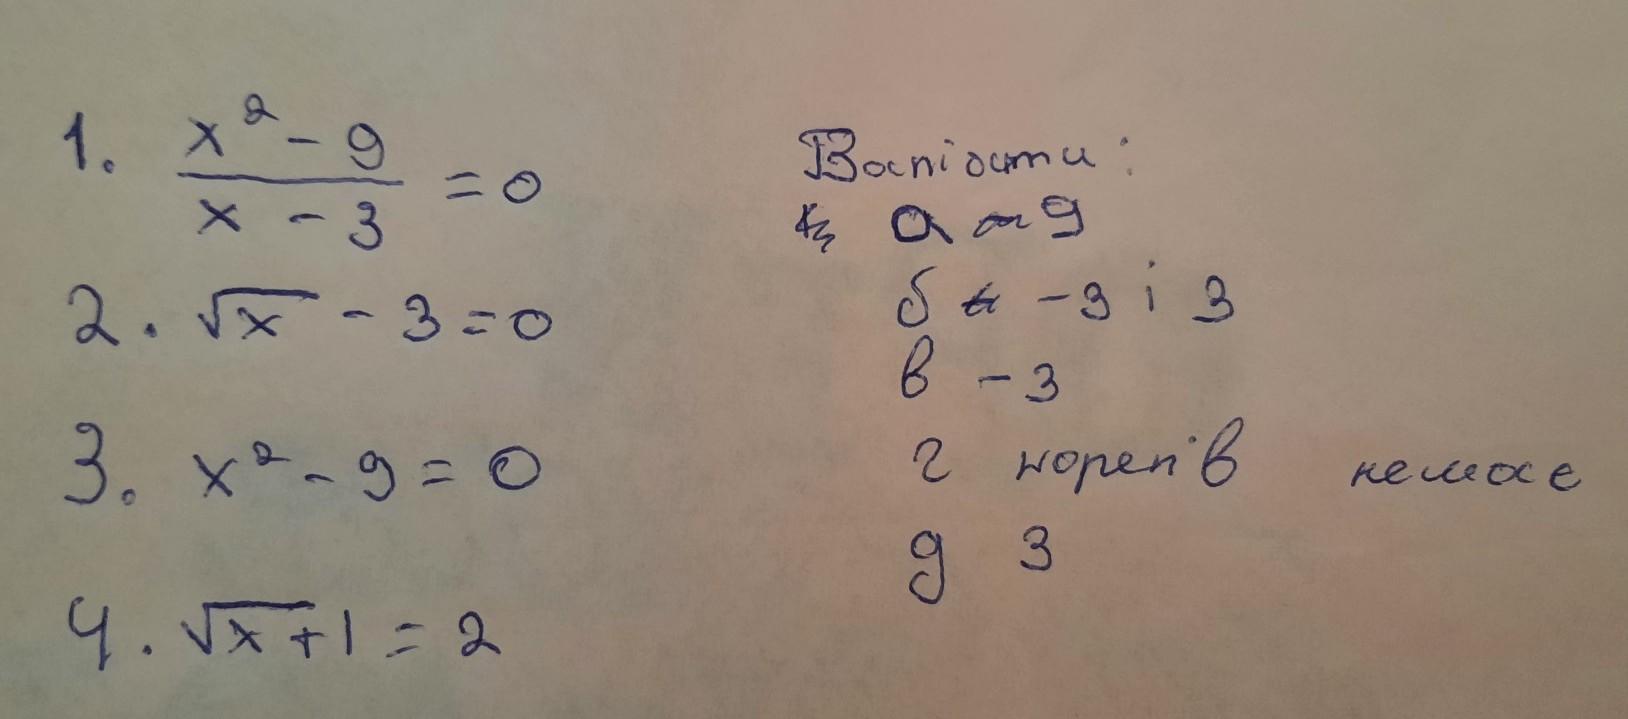 1. (x² - 9)/(x - 3) = 0
2. √x - 3 = 0
3. x² - 9 = 0
4. √x+1 = 2
а 9
б -3 і 3
в -3
г коренів немає
д 3